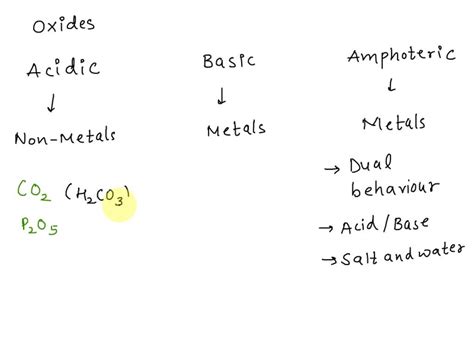 Oxides
Acidic
↓
Non-Metals
CO₂ (H₂CO₃)
P₂O₅
Basic
↓
Metals
Amphoteric
↓
Metals
→ Dual
behaviour
→ Acid/Base
→ Salt and water